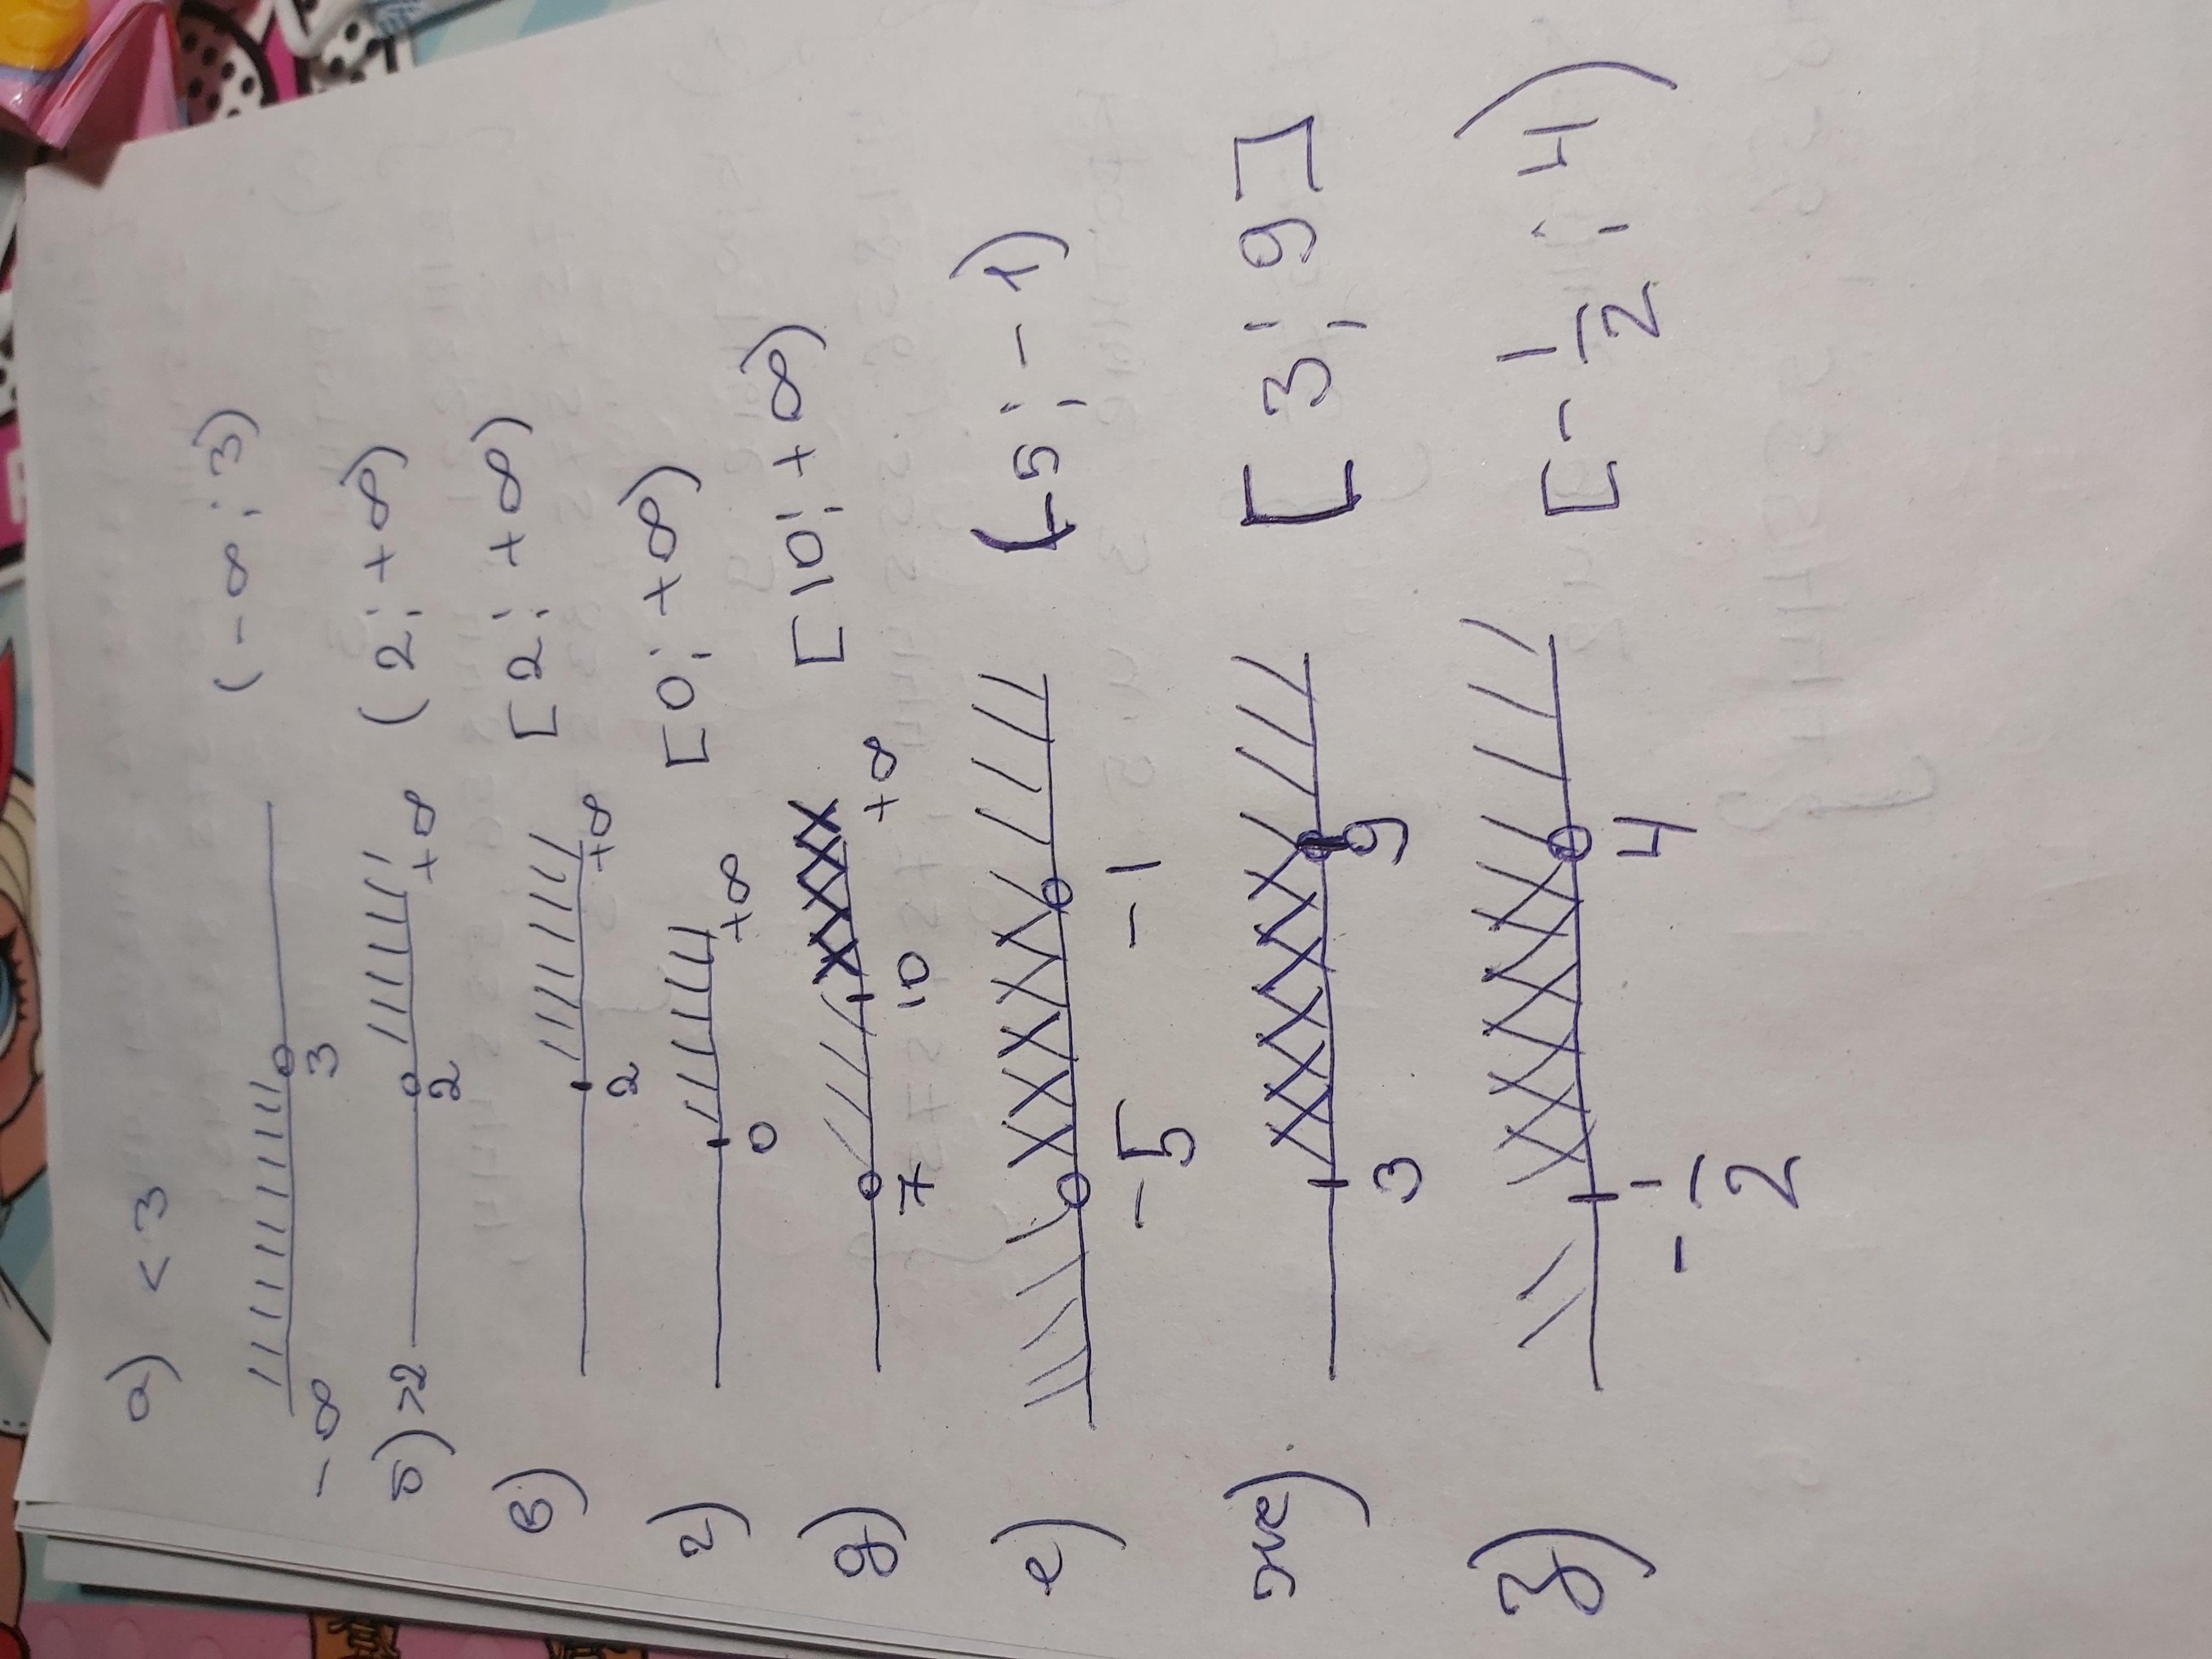 а) < 3
(-∞; 3)
-∞ 3
б) >2 (2; +∞)
2 +∞
в) [2; +∞)
2 +∞
г) [0; +∞)
0 +∞
д) [10; +∞)
7 10 +∞
е) (-5; -1)
-5 -1
ж) [3; 9]
3 9
з) [-1/2; 4)
-1/2 4